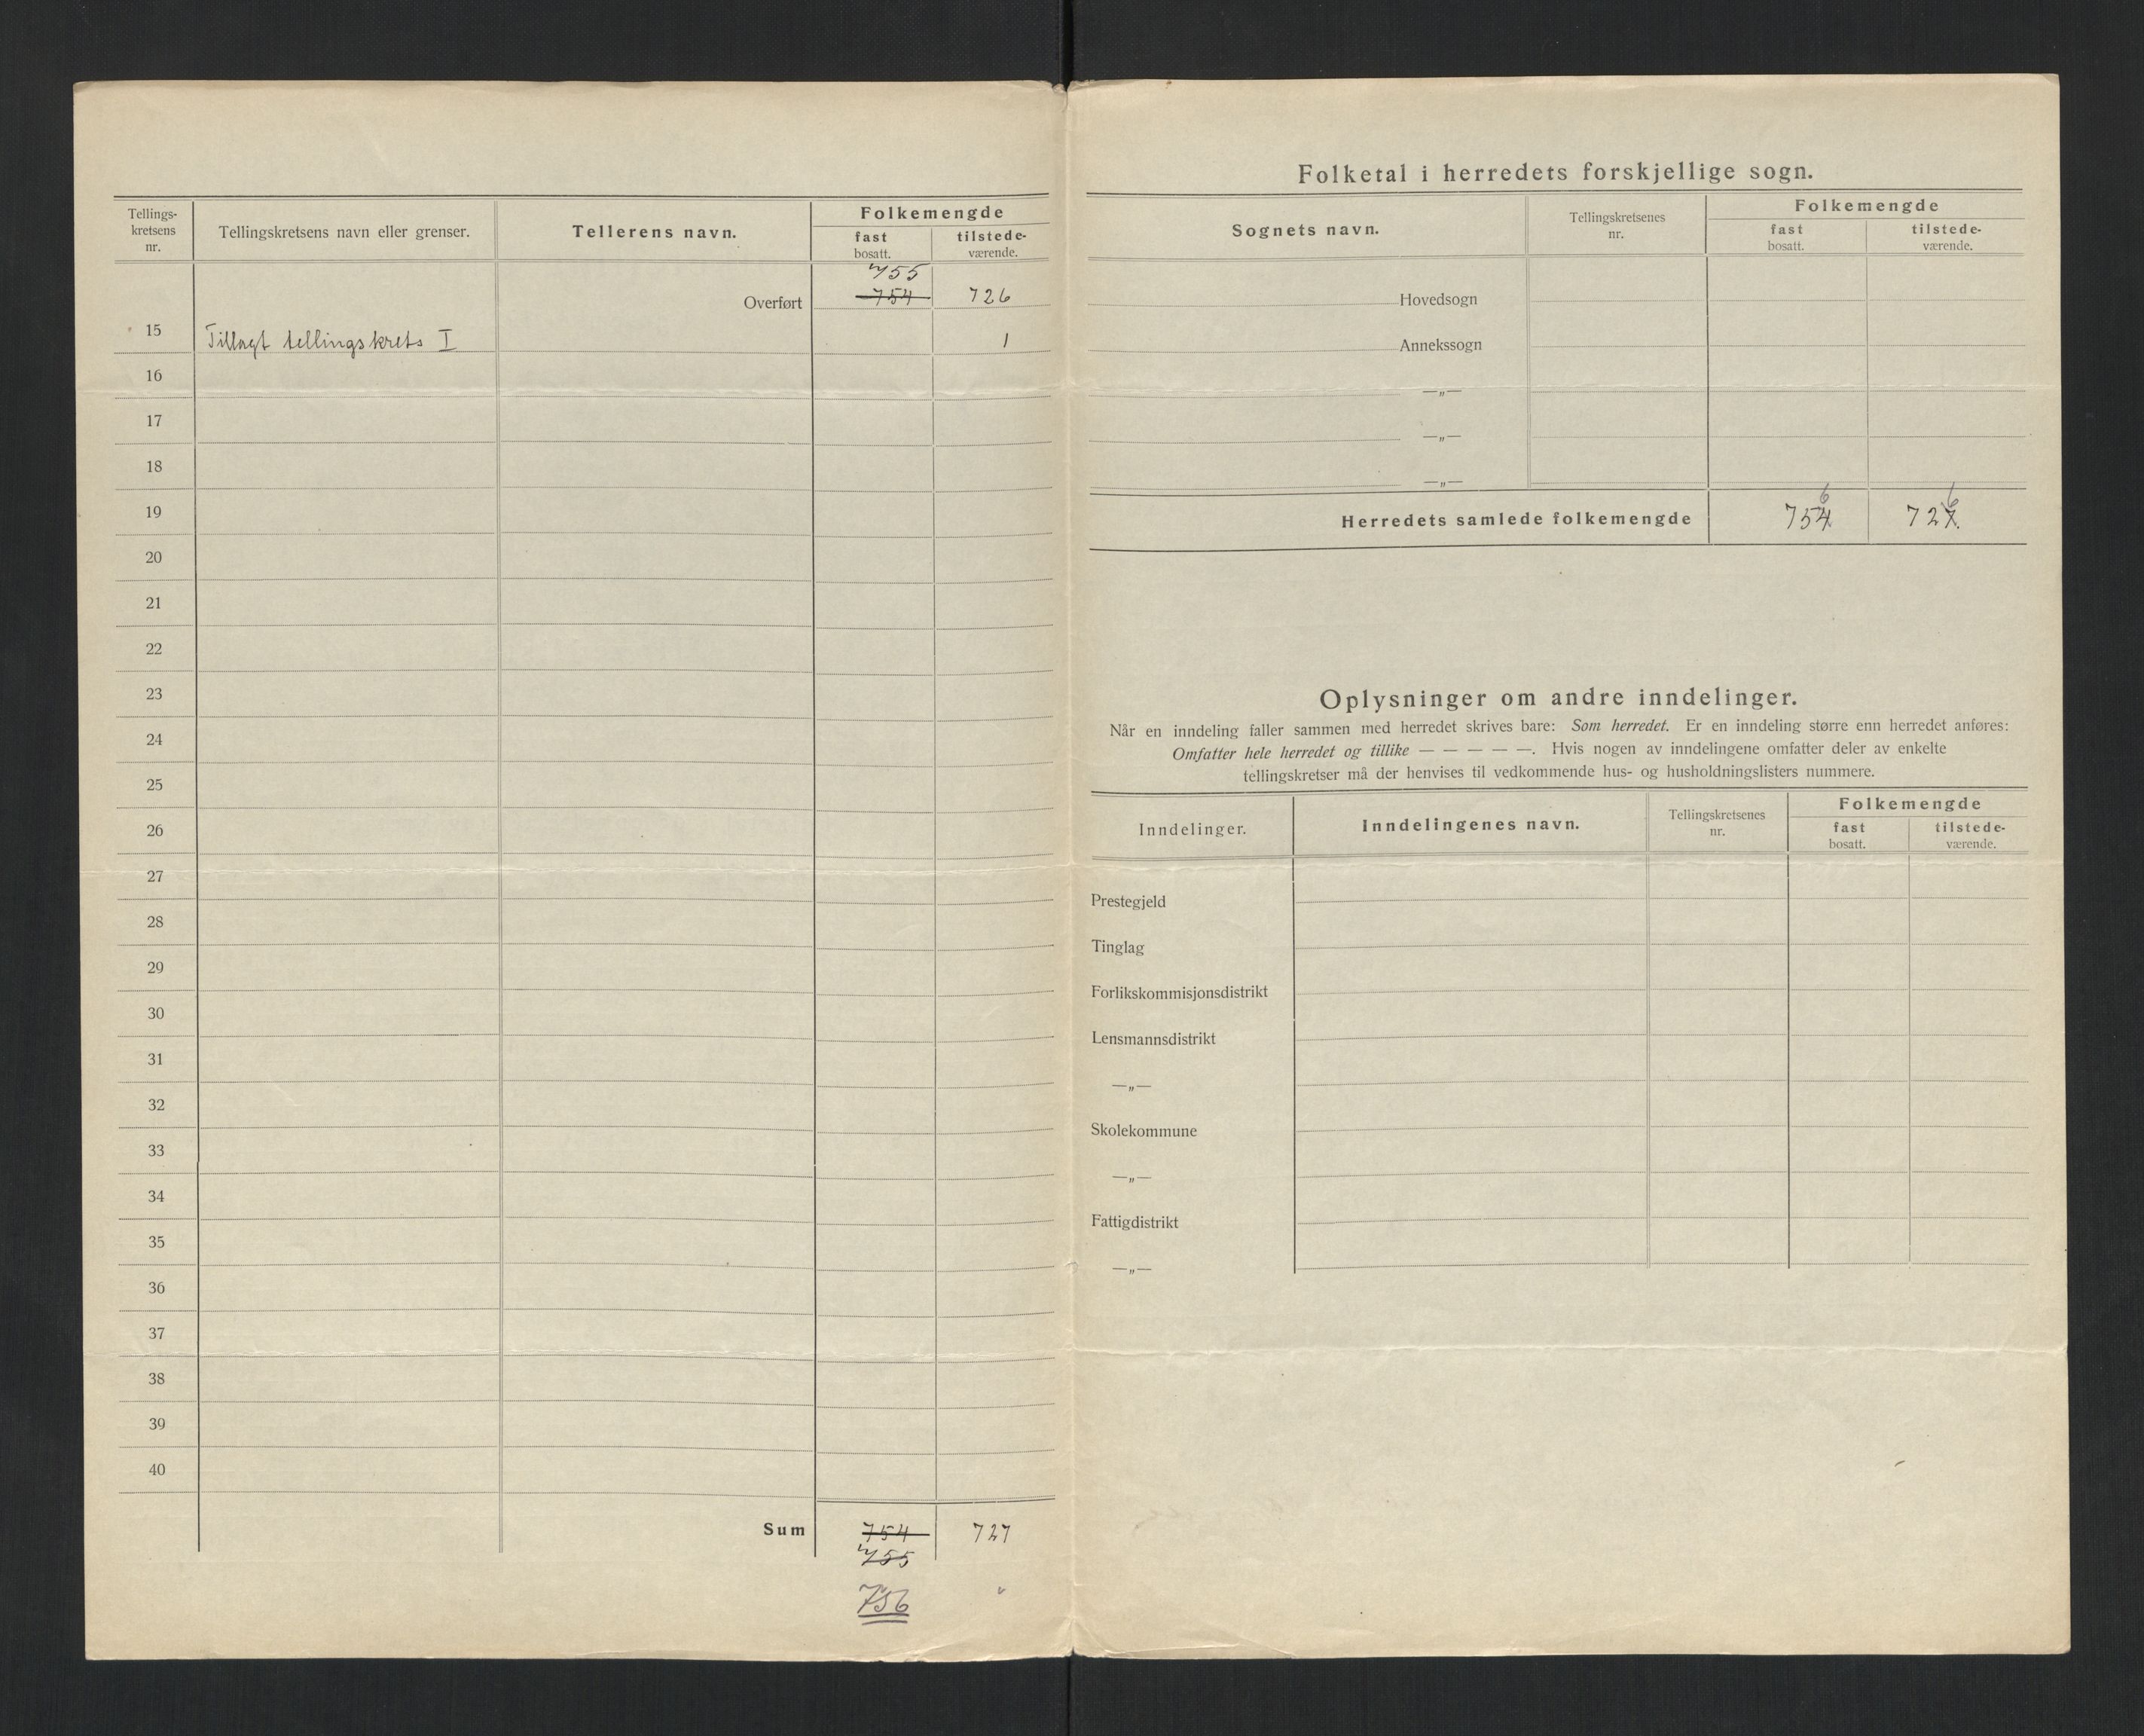 Tellings-
kretsens
nr.
Tellingskretsens navn eller grenser.
Tellerens navn.
Folkemengde
fast
bosatt.
tilstede-
værende.
755
Overført 754 726
15 Tillagt tellingskrets I 1
16
17
18
19
20
21
22
23
24
25
26
27
28
29
30
31
32
33
34
35
36
37
38
39
40
Sum 754 727
755
756 "
Folketal i herredets forskjellige sogn.
Sognets navn.
Tellingskretsenes
nr.
Folkemengde
fast
bosatt.
tilstede-
værende.
Hovedsogn
Annekssogn
—„—
—„—
—„—
6 6
Herredets samlede folkemengde 754 727
Oplysninger om andre inndelinger.
Når en inndeling faller sammen med herredet skrives bare: Som herredet. Er en inndeling større enn herredet anføres:
Omfatter hele herredet og tillike — — — — —. Hvis nogen av inndelingene omfatter deler av enkelte
tellingskretser må der henvises til vedkommende hus- og husholdningslisters nummere.
Inndelinger.
Inndelingenes navn.
Tellingskretsenes
nr.
Folkemengde
fast
bosatt.
tilstede-
værende.
Prestegjeld
Tinglag
Forlikskommisjonsdistrikt
Lensmannsdistrikt
—„—
Skolekommune
—„—
Fattigdistrikt
—„—